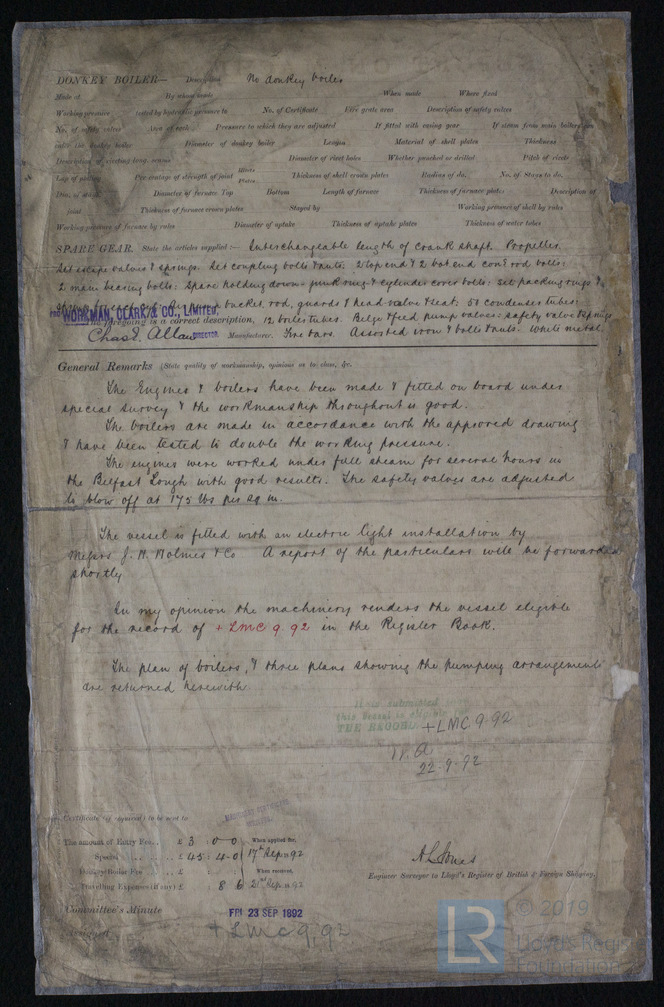 DONKEY BOILER— Description No donkey boiler
Made at By whom made When made Where fixed
Working pressure tested by hydraulic pressure to No. of Certificate Fire grate area Description of safety valves
No. of safety valves Area of each Pressure to which they are adjusted If fitted with easing gear If steam from main boilers can
enter the donkey boiler Diameter of donkey boiler Length Material of shell plates Thickness
Description of riveting long. seams Diameter of rivet holes Whether punched or drilled Pitch of rivets
Lap of plating Per centage of strength of joint Rivets Plates Thickness of shell crown plates Radius of do. No. of Stays to do.
Dia. of stays Diameter of furnace Top Bottom Length of furnace Thickness of furnace plates Description of
joint Thickness of furnace crown plates Stayed by Working pressure of shell by rules
Working pressure of furnace by rules Diameter of uptake Thickness of uptake plates Thickness of water tubes
SPARE GEAR. State the articles supplied:— Interchangeable length of crank shaft. Propeller.
Set escape valves & springs. Set coupling bolts & nuts. 2 top end & 2 bot end con rod bolts:
2 main bearing bolts: Spare holding down - junk ring & cylinder cover bolts: set packing rings &
bucket, rod, guards & head valve & seat: 50 condenser tubes:
FOR WORKMAN, CLARK & CO., LIMITED,
The foregoing is a correct description, 12 boiler tubes. Bilge & feed pump valves: safety valve springs
Chas E. Allan DIRECTOR. Manufacturer. Fire bars. Assorted iron & bolts & nuts. White metal.
General Remarks (State quality of workmanship, opinions as to class, &c.
The Engines & boilers have been made & fitted on board under
special survey & the workmanship throughout is good.
The boilers are made in accordance with the approved drawing
& have been tested to double the working pressure.
The engines were worked under full steam for several hours in
the Belfast Lough with good results. The safety valves are adjusted
to blow off at 175 lbs per sq in.
The vessel is fitted with an electric light installation by
Messrs J. H. Holmes & Co A report of the particulars will be forwarded
shortly
In my opinion the machinery renders the vessel eligible
for the record of + LMC 9.92 in the Register Book.
The plan of boilers, & three plans showing the pumping arrangements
are returned herewith
It is submitted
this vessel is eligible for
THE RECORD +LMC 9.92
22.9.92
Certificate (if required) to be sent to
The amount of Entry Fee .. £ 3 . 0 . 0 When applied for,
Special .. £ 45 : 4 . 0 17th Septr 92
Donkey Boiler Fee .. £ When received,
Travelling Expenses (if any) £ 8 6 21st Septr 92
A L Jones
Engineer Surveyor to Lloyd's Register of British & Foreign Shipping.
Committee's Minute FRI 23 SEP 1892
Assigned + LMC 9.92
LR © 2019
Lloyd's Register
Foundation